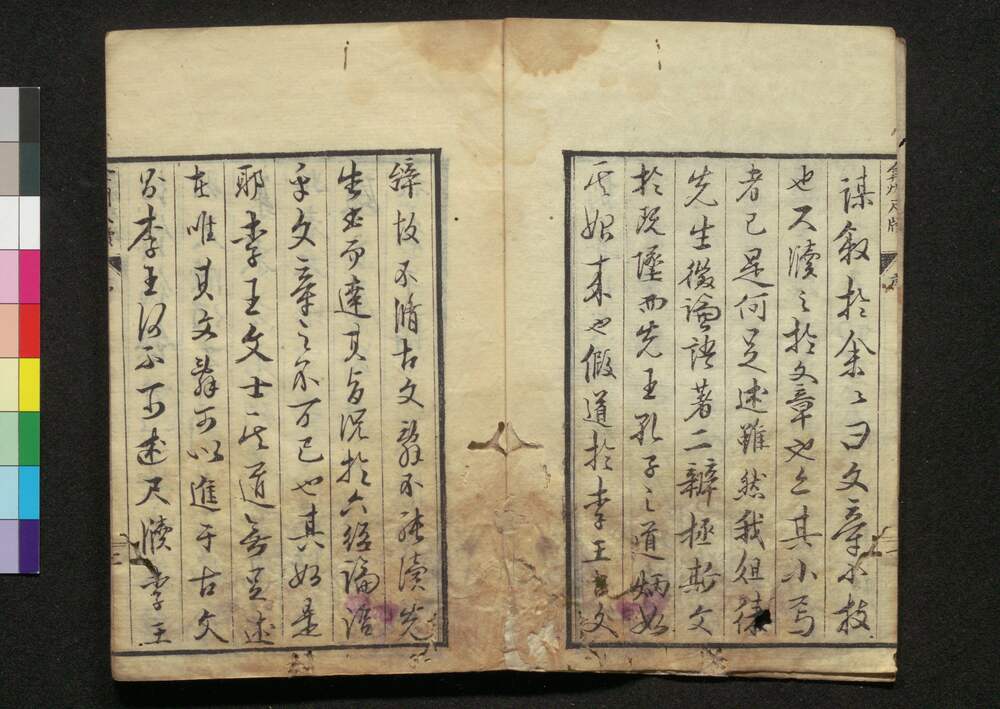 謀叙於余〻曰文章小技
也尺牘之於文章也亦其小焉
者已是何足述雖然我徂徠
先生徴論語著二辨極斯文
於既墜而先王孔子之道炳如
其始来也假道於李王古文
辞故不脩古文辞不能讀先
生書而達其旨況於六經論語
乎文章之不可已也其如是
耶李王文士其道無足述
在唯其文辞可以進于古文
則李王何不可述尺牘李王